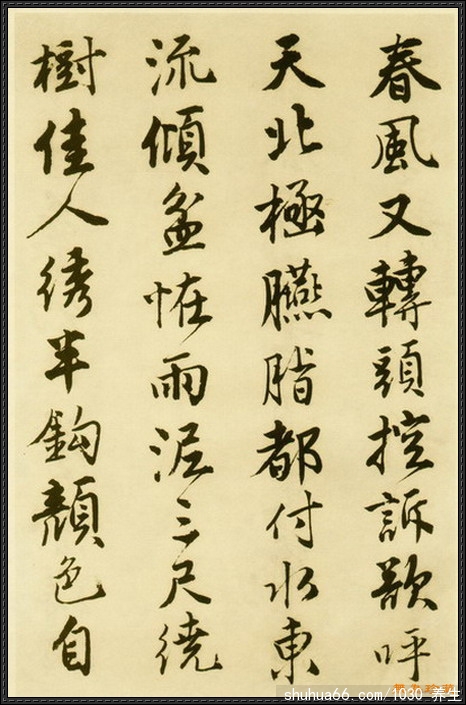 春風又轉頭控訴歌呼
天北極臙脂都付水東
流傾盆恠雨泥三尺繞
樹佳人绣半鈎顏色自
shuhua66.com/1030 养生